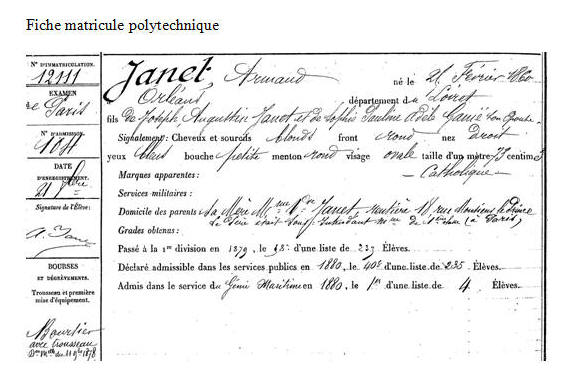 Fiche matricule polytechnique
N° D'IMMATRICULATION.
12111
EXAMEN
de Paris
N° D'ADMISSION.
DATE
D'ENREGISTREMENT.
21
Signature de l'Élève:
A. Janet
BOURSES
ET
DÉGRÈVEMENTS.
Trousseau et première
mise d'équipement.
Boursier
avec trousseau
Janet, Armand né le 21 Février 1860
Orléans, département du Loiret
fils de Joseph, Augustin Janet et de Sophie Pauline Adèle son épouse
Signalement: Cheveux et sourcils blonds front rond nez Droit
yeux bleus bouche petite menton rond visage ovale taille d'un mètre 73 centim
Marques apparentes: — Catholique —
Services militaires:
Domicile des parents: Sa Mère Mme Vve Janet rentière 18, rue Monsieur le Prince
Le Père était Sous Intendant (à Paris)
Grades obtenus:
Passé à la 1re division en 1879, le d'une liste de 237 Élèves.
Déclaré admissible dans les services publics en 1880, le 40e d'une liste de 235 Élèves.
Admis dans le service du Génie Maritime en 1880, le 1er d'une liste de 4 Élèves.